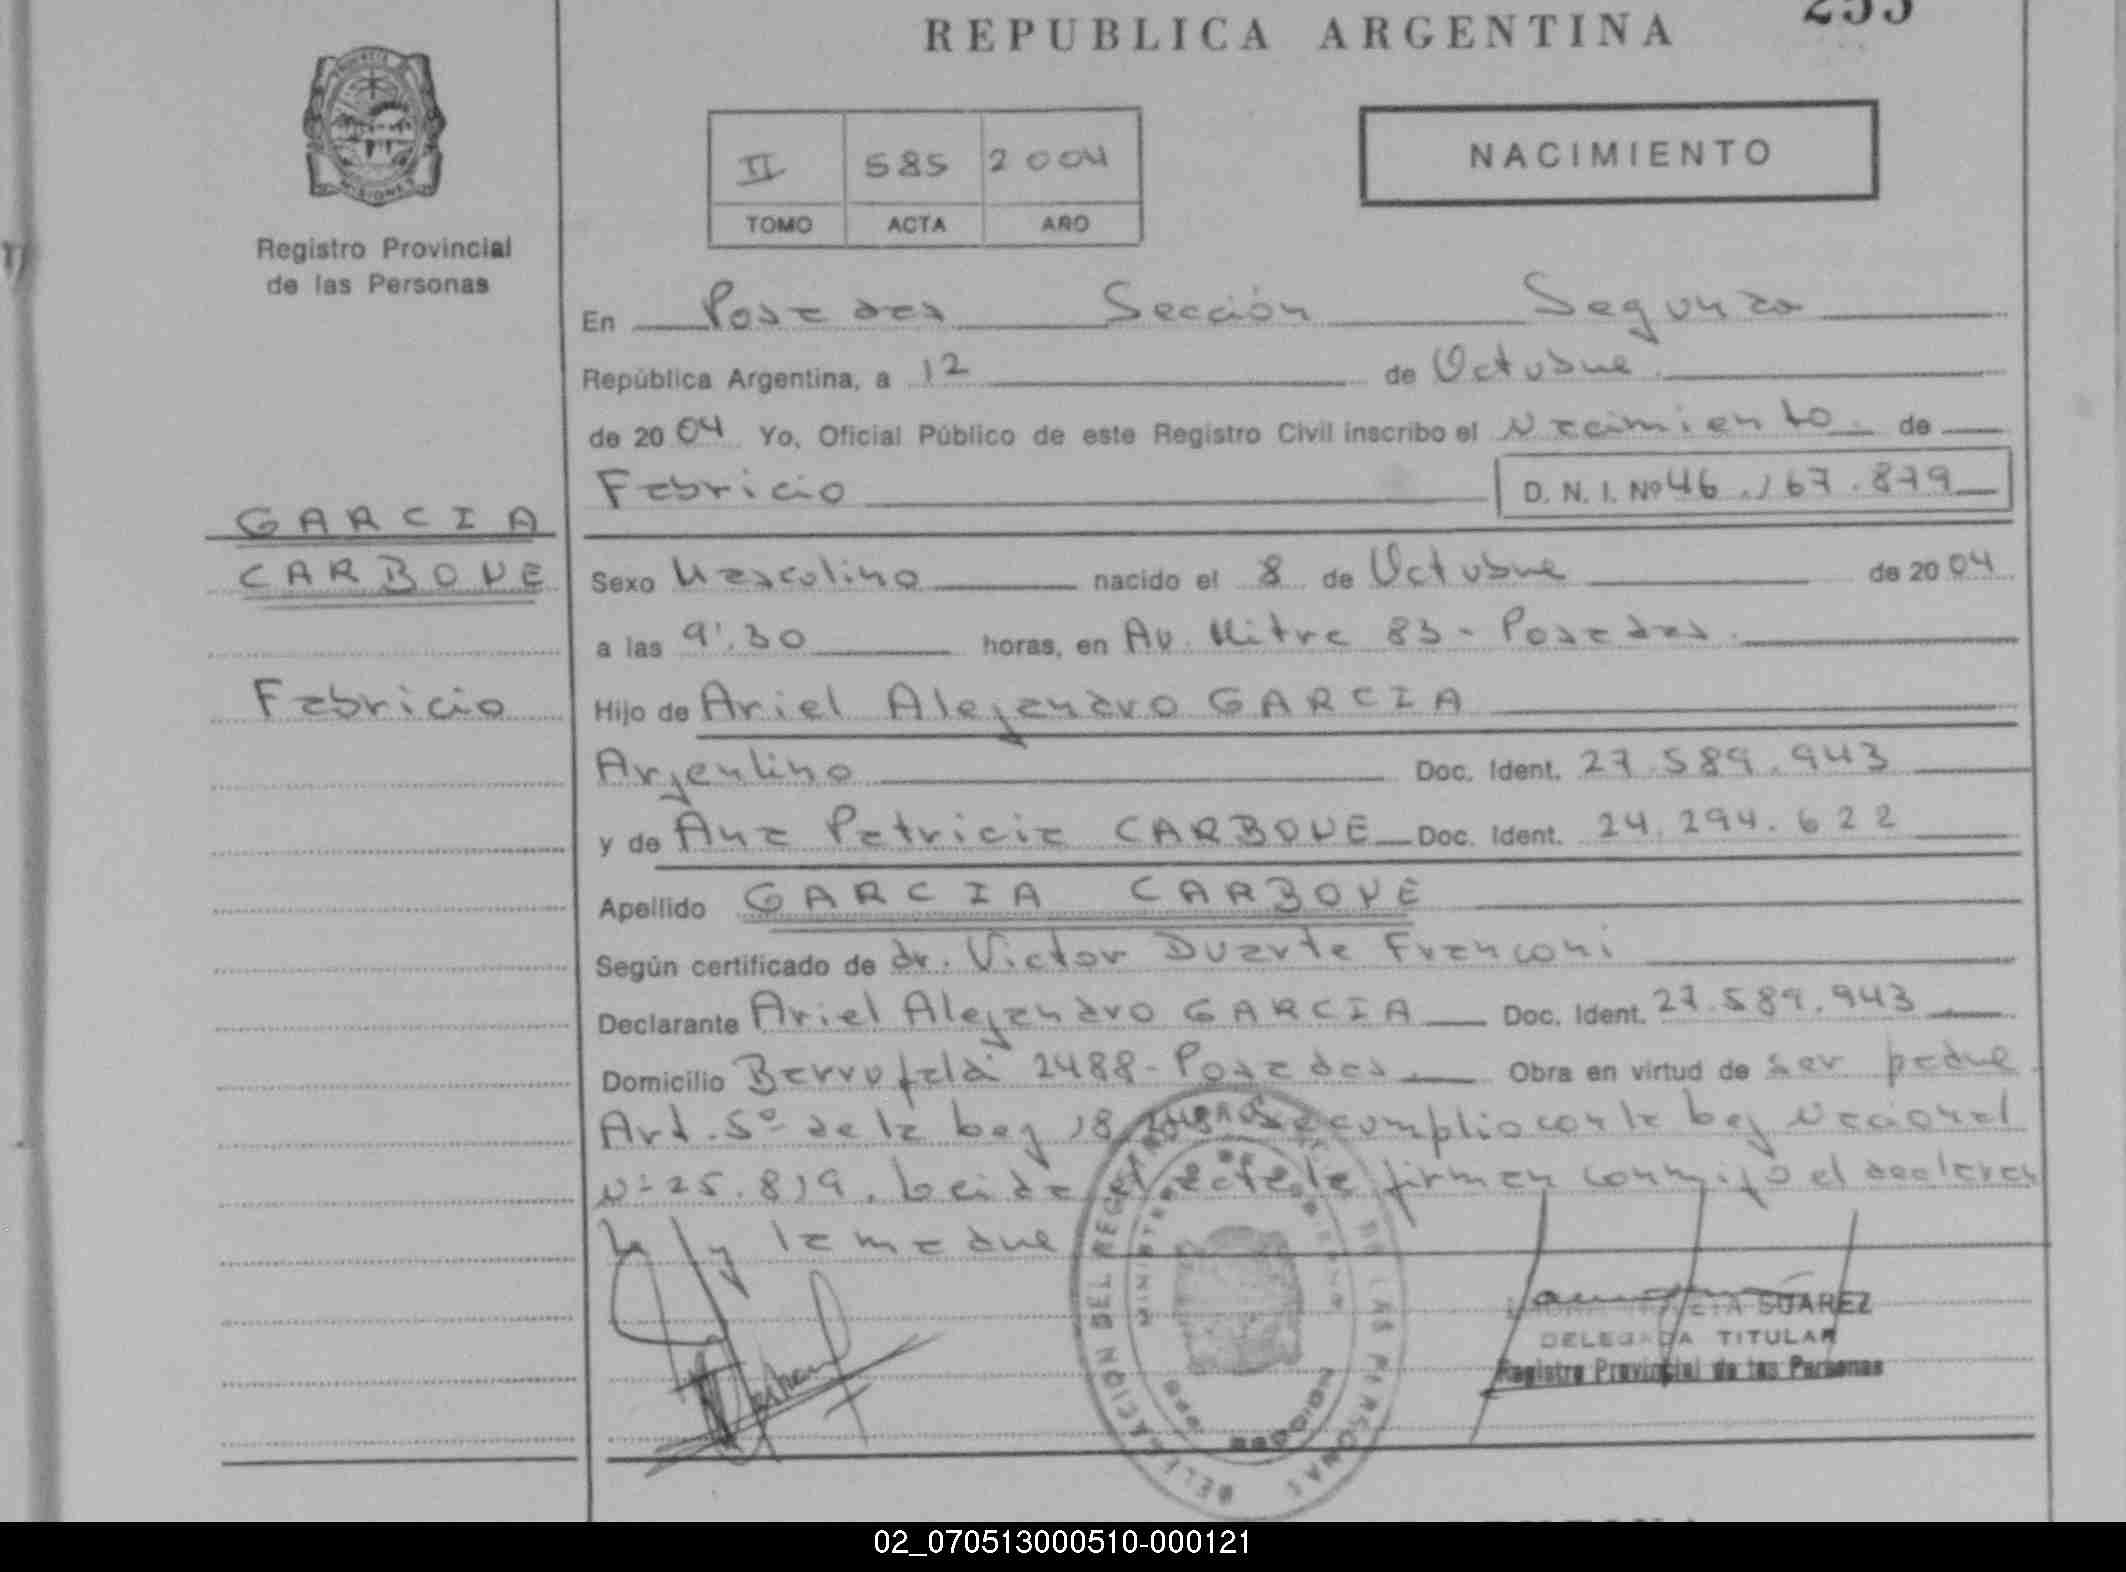 REPUBLICA ARGENTINA
NACIMIENTO
II 585 2004
TOMO ACTA AÑO
MISIONES
Registro Provincial
de las Personas
En Posadas Sección Segunda
República Argentina, a 12 de Octubre
de 2004 Yo, Oficial Público de este Registro Civil inscribo el Nacimiento de
Fabricio D. N. I. Nº 46.167.879
GARCIA
CARBONE
Fabricio
Sexo Masculino nacido el 8 de Octubre de 2004
a las 9:30 horas, en Av. Mitre 83 - Posadas.
Hijo de Ariel Alejandro GARCIA
Argentino Doc. Ident. 27.589.943
y de Ana Patricia CARBONE Doc. Ident. 24.294.622
Apellido GARCIA CARBONE
Según certificado de dr. Victor Duarte Franconi
Declarante Ariel Alejandro GARCIA Doc. Ident. 27.589.943
Domicilio 2488 - Posadas Obra en virtud de ser padre.
Art. 5º de la Ley 18.248 Se cumplio con la Ley Nacional
Nº 25.819. Leida el acta la firman conmigo el declaran
te y la madre
DELEGACION DEL REGISTRO DE LAS PERSONAS
SUAREZ
DELEGADA TITULAR
Registro Provincial de las Personas
02_070513000510-000121